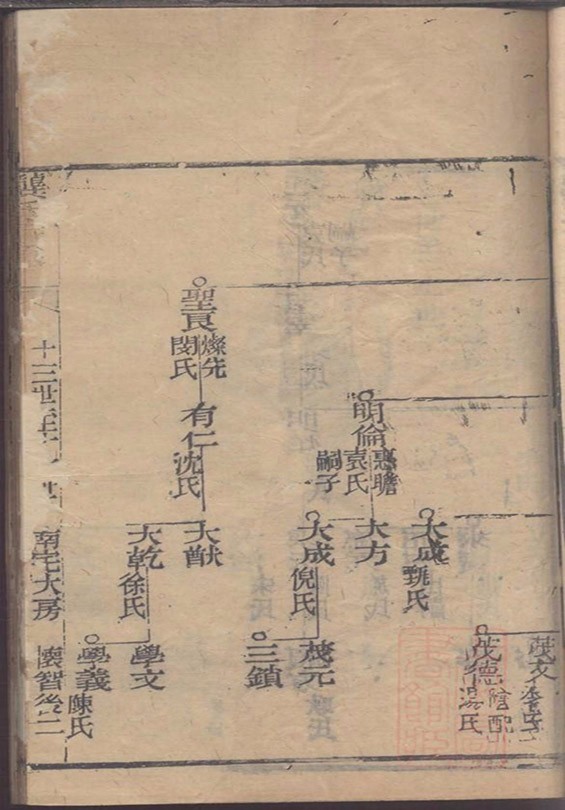 茂文
茂德
陰配
湯氏
大成
甄氏
明倫
惠瞻
袁氏
嗣子
大方
大成
倪氏
茂元
三鎖
聖真
燦先
閔氏
有仁
沈氏
大猷
大乾
徐氏
學文
學義
陳氏
十三世至十 世
南宅大房
懷智後二